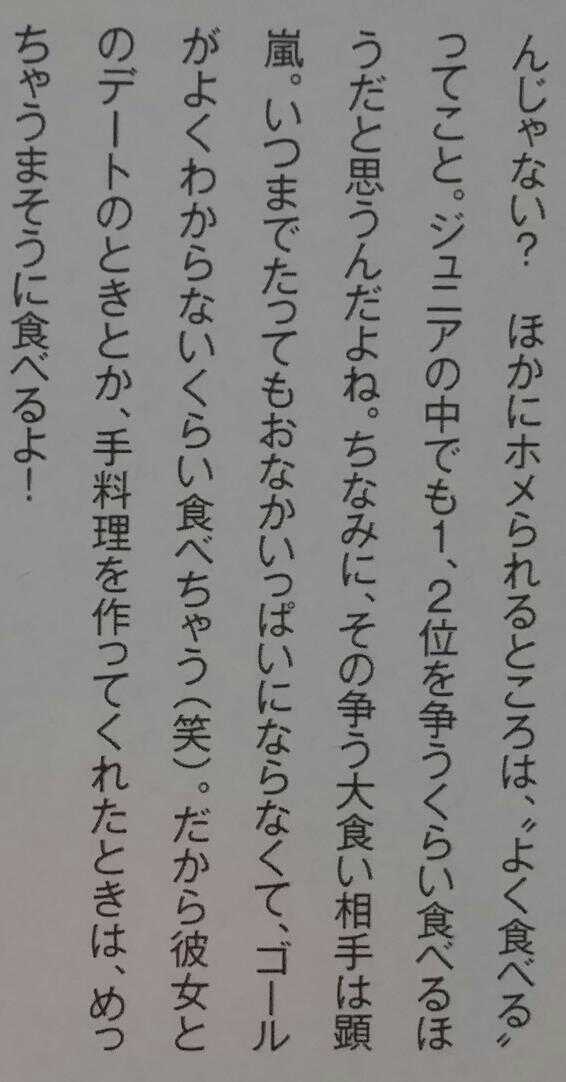 んじゃない？　ほかにホメられるところは、〝よく食べる〟
ってこと。ジュニアの中でも1、2位を争うくらい食べるほ
うだと思うんだよね。ちなみに、その争う大食い相手は顕
嵐。いつまでたってもおなかいっぱいにならなくて、ゴール
がよくわからないくらい食べちゃう（笑）。だから彼女と
のデートのときとか、手料理を作ってくれたときは、めっ
ちゃうまそうに食べるよ！